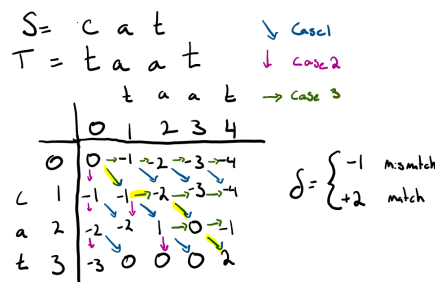 S= c a t
T = t a a t
↘ Case1
↓ Case 2
→ Case 3
t a a t
0 1 2 3 4
0 0 → -1 → -2 → -3 → -4
c 1 -1 -1 → -2 → -3 → -4
a 2 -2 -2 1 → 0 → -1
t 3 -3 0 0 0 2
δ = { -1 mismatch
+2 match